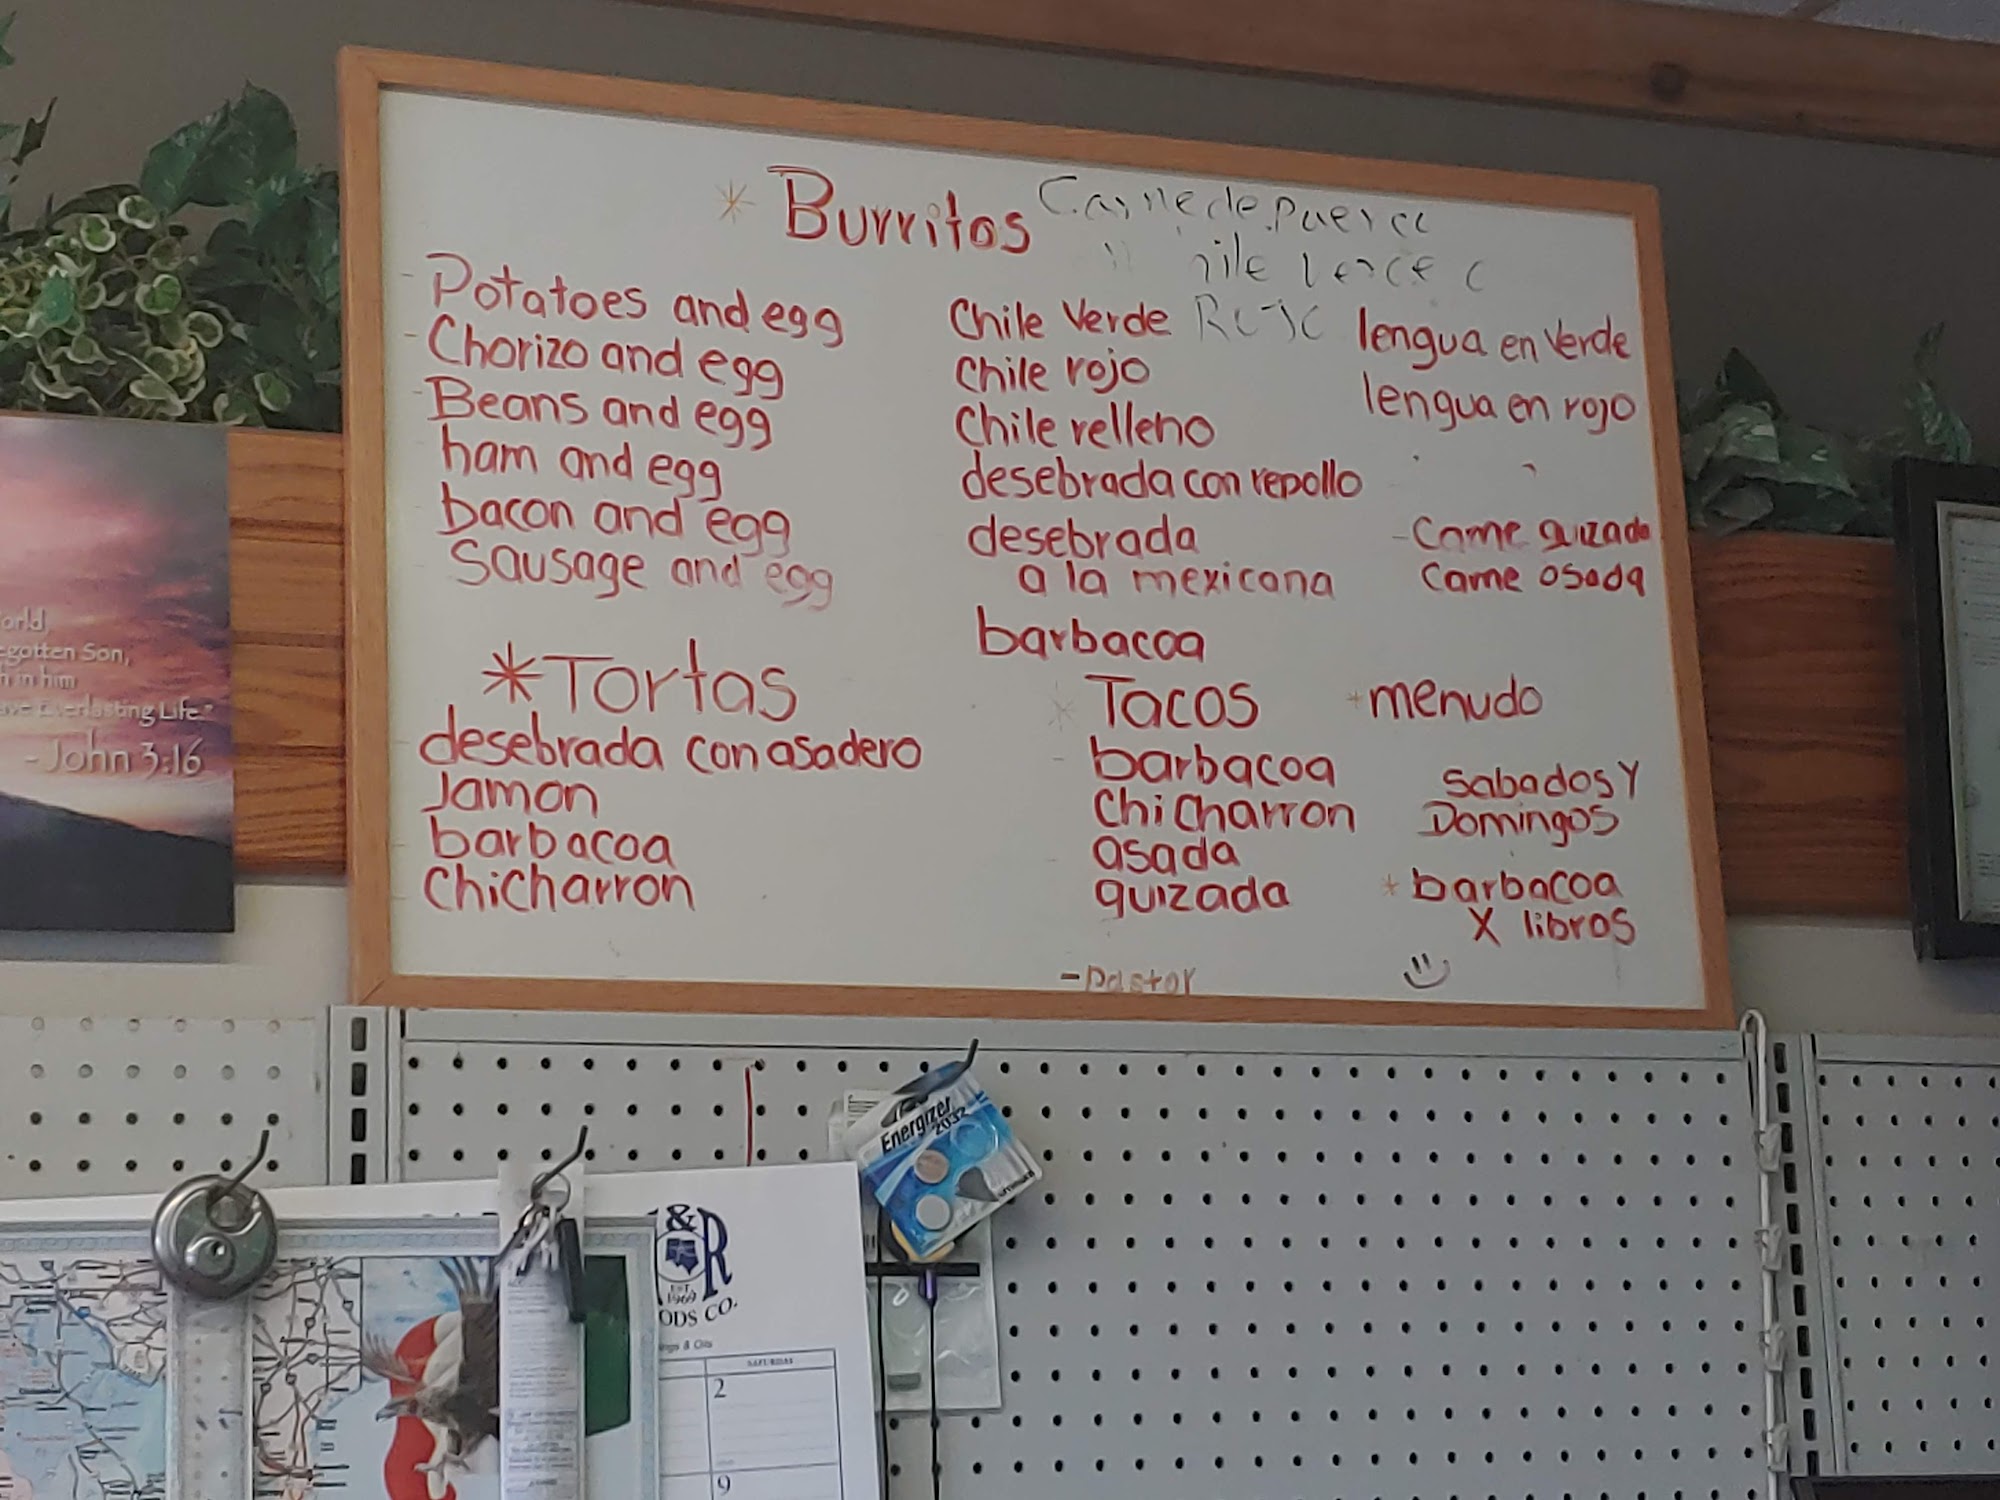 * Burritos
Carne de puerco
Potatoes and egg
Chorizo and egg
Beans and egg
ham and egg
bacon and egg
Sausage and egg
Chile verde
Chile rojo
Chile relleno
desebrada con repollo
desebrada
a la mexicana
barbacoa
lengua en verde
lengua en rojo
- Carne guizada
Carne asada
*Tortas
desebrada con asadero
Jamon
barbacoa
Chicharron
* Tacos
barbacoa
Chicharron
asada
guizada
- Pastor
*menudo
sabados y
Domingos
*barbacoa
X libros
gotten Son,
h in him
ave Everlasting Life."
- John 3:16
Energizer
2032
&R
EST.
1969
ODS CO.
SATURDAY
2
9